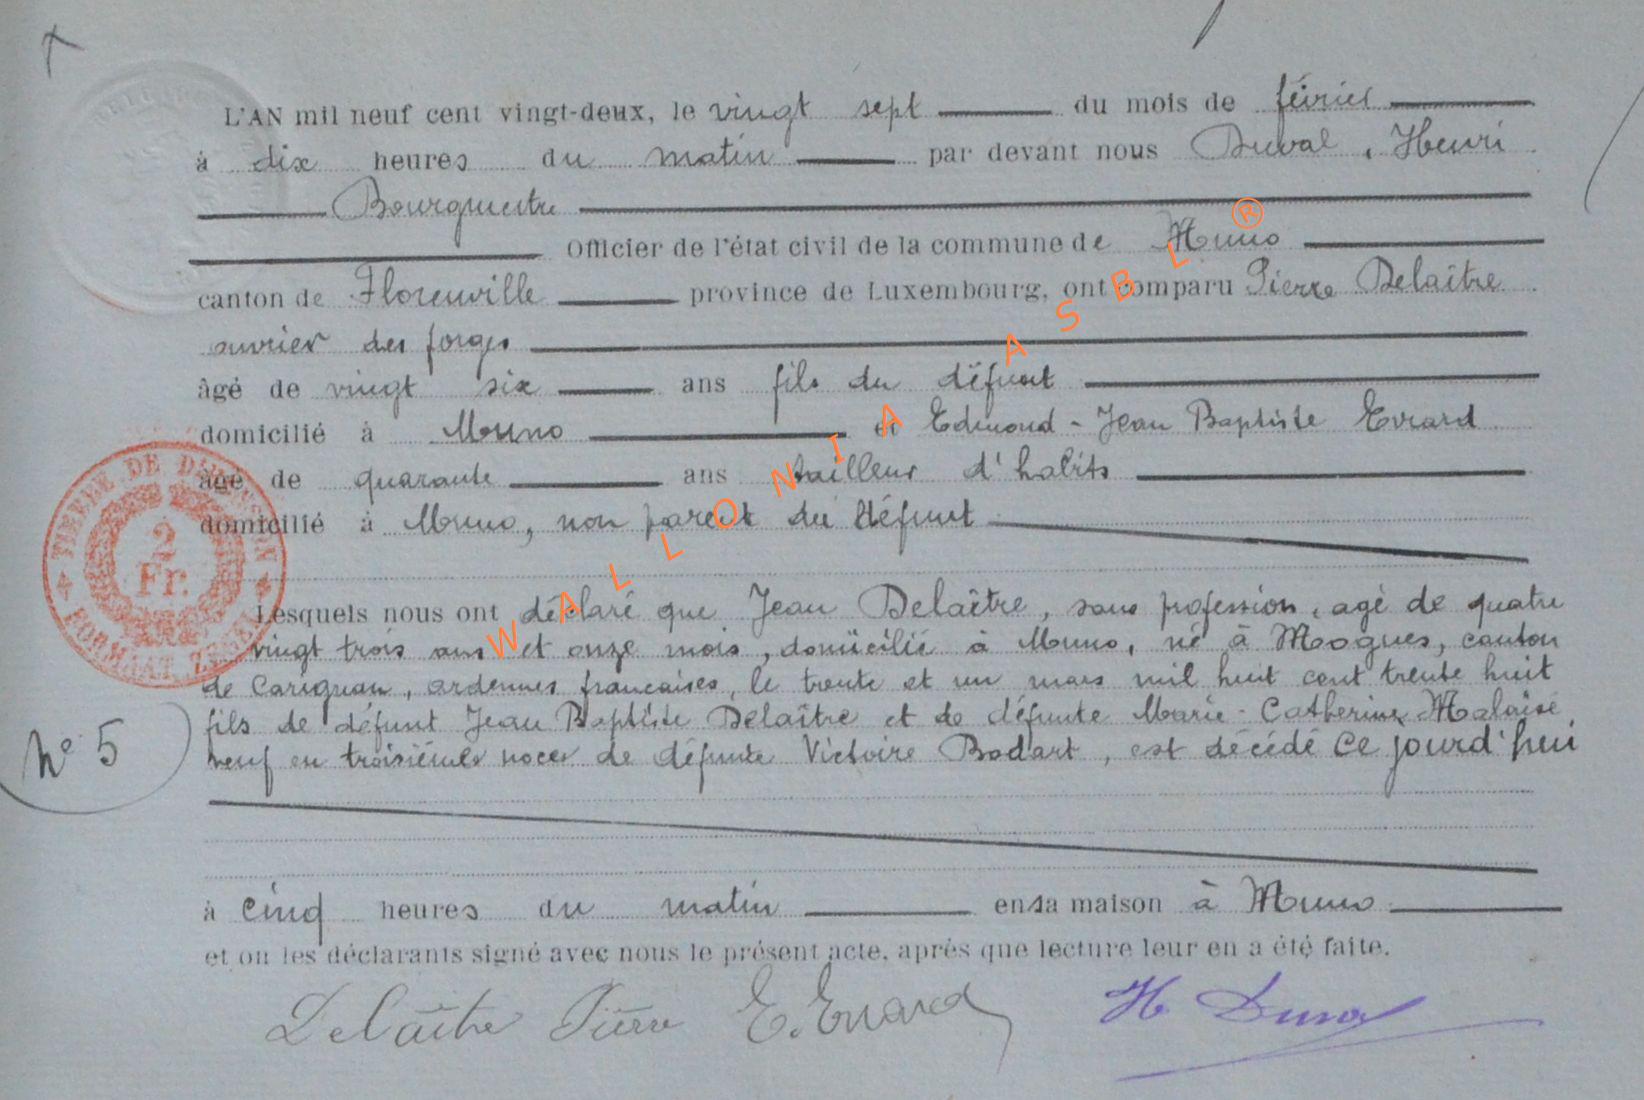 L'AN mil neuf cent vingt-deux, le vingt sept du mois de février
à dix heures du matin par devant nous Duval, Henri
Bourgmestre
Officier de l'état civil de la commune de Muno
canton de Florenville province de Luxembourg, ont comparu Pierre Delaître
ouvrier des forges
âgé de vingt six ans fils du défunt
domicilié à Muno et Edmond - Jean Baptiste Evrard
âgé de quarante ans tailleur d'habits
domicilié à Muno, non parent du défunt
Lesquels nous ont déclaré que Jean Delaître, sans profession, agé de quatre
vingt trois ans et onze mois, domicilié à Muno, né à Mogues, canton
de Carignan, ardennes françaises, le trente et un mars mil huit cent trente huit
fils de défunt Jean Baptiste Delaître et de défunte Marie-Catherine Malaisé
veuf en troisièmes noces de défunte Victoire Bodart, est décédé ce jourd'hui
N° 5
à cinq heures du matin en sa maison à Muno
et on les déclarants signé avec nous le présent acte, après que lecture leur en a été faite.
Delaître Pierre E. Evrard H. Duval
TIMBRE DE DIMENSION
2
Fr.
FORMAAT ZEGEL
WALLONIA ASBL ®